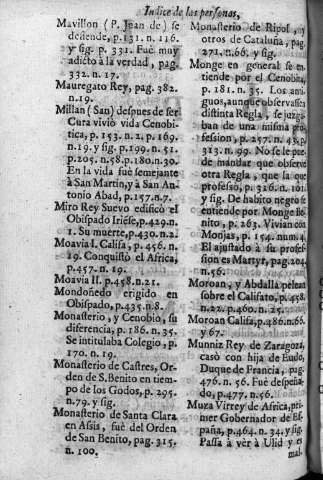 Indice de las personas,
Mavillon (P. Jean de) se
defiende, p.131. n. 116.
y sig. p. 331. Fuè muy
adicto à la verdad, pag.
332. n. 17.
Mauregato Rey, pag. 382.
n.19.
Millan (San) despues de ser
Cura viviò vida Cenobi-
tica, p. 153. n.2. p. 169.
n.19. y sig. p.199. n.51.
p.205. n.58.p.180.n.30.
En la vida fuè semejante
à San Martin, y à San An-
tonio Abad, p.157.n.7.
Miro Rey Suevo edificò el
Obispado Iriése, p.429.n.
1. Su muerte,p.430.n.2.
Moavia I. Califa, p. 456. n.
19. Conquistò el Africa,
p.457. n. 19.
Moavia II. p.458.n.21.
Mondoñedo erigido en
Obispado, p.435.n.8.
Monasterio, y Cenobio, su
diferencia, p. 186. n.35.
Se intitulaba Colegio, p.
170. n. 19.
Monasterio de Castres, Or-
den de S.Benito en tiem-
po de los Godos, p. 295.
n.79. y sig.
Monasterio de Santa Clara
en Assis, fuè del Orden
de San Benito, pag. 315.
n. 100.
Monasterio de Ripol, y
otros de Cataluña, pag.
271. n.66. y sig.
Monge en general se en-
tiende por el Cenobita,
p. 181. n. 35. Los anti-
guos, aunque observassen
distinta Regla, se juzga-
ban de una misma pro-
fession, p. 257. n. 45. p.
313. n. 99. No se le pue-
de mandar que observe
otra Regla, que la que
professò, p. 316. n. 101.
y sig. De habito negro se
entiende por Monge Be-
nito, p. 263. Vivian con
Monjas, p. 154. num. 4.
El ajustado à su profes-
sion es Martyr, pag.204.
n.56.
Moroan, y Abdalla pelean
sobre el Califato, p.458.
n.22. p.460. n. 25.
Moroan Califa, p.486.n.66.
y 67.
Munniz Rey de Zaragoza,
casò con hija de Eudo,
Duque de Francia, pag.
476. n. 56. Fuè despeña-
do, p.477. n.56.
Muza Virrey de Africa, pri-
mer Governador de Es-
paña, p.464. n. 34. y sig.
Passa à ver à Ulid y es
mal-